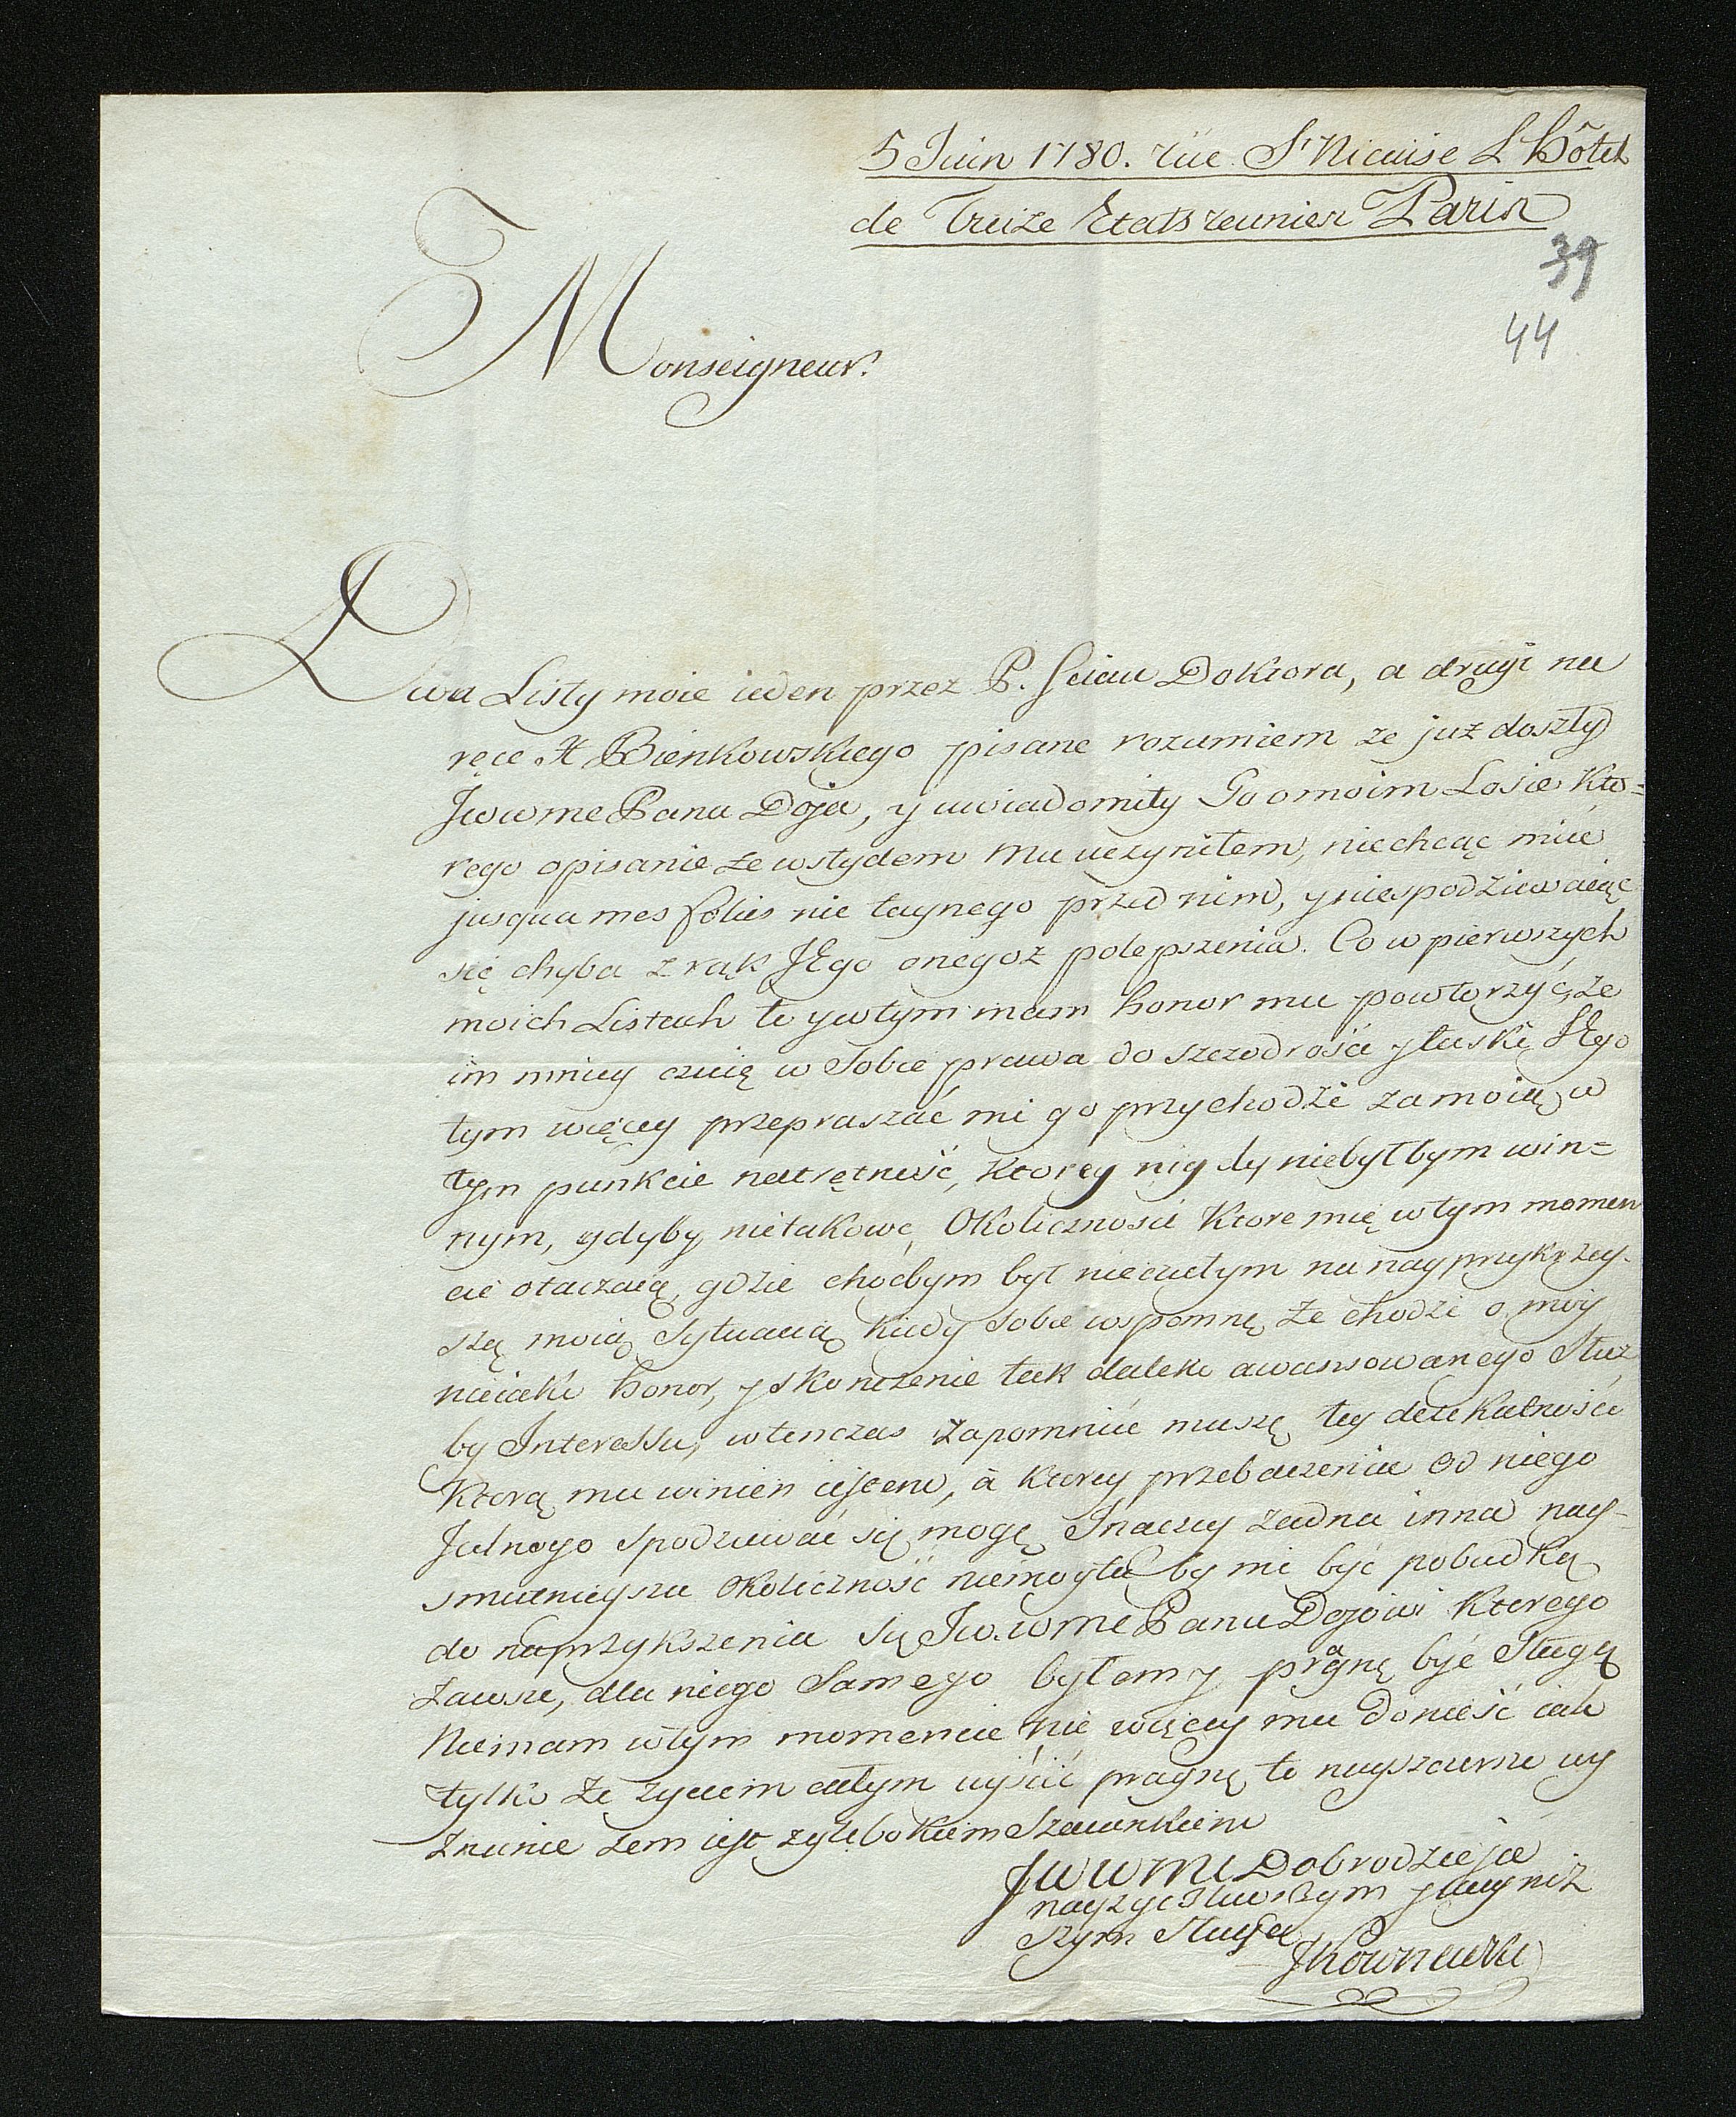 5 Juin 1780. rüe St Nicaise L'hôtel
de Treize Etats reunier Paris
39
44
Monseigneur!
Dwa Listy moie ieden przez P. Doktora, a drugi na
ręce X Bienkowskiego pisane rozumiem ze już doszły
Jwwme Pana Doja, y uwiadomiły Go o moim Losie kto=
rego opisanie ze wstydem mu uczyniłem, niechcąc miec
jusqua mes folies nic taynego przed nim, y niespodziewaiąc
się chyba z rąk JEgo onegoż polepszenia. Co w pierwszych
moich Listach to y w tym mam honor mu powtorzyć, że
im mniey czuię w Sobie prawa do szczodrości y łaski JEgo
tym więcey przepraszać mi go przychodzi za moią w
tym punkcie natrętność, ktorey nigdy niebyłbym win=
nym, gdyby nie takowe Okoliczności ktore mię w tym momen
cie otaczaią, gdzie choćbym był nieczułym na nayprzykrzey-
szą moią Sytuacią kiedy Sobie wspomnę że chodzi o moy
nieiaki honor, y skonczenie tak daleko awansowanego Służ
by Interessu, wtenczas zapomnieć muszę tey delikatności
ktorą mu winien iestem, a ktorey przebaczenia od niego
Jednego spodziewać się mogę. Inaczey żadna inna nay-
smutnieysza okoliczność niemogła by mi być pobudką
do naprzykszenia się Jw.wme Panu Dojowi ktorego
zawsze, dla niego Samego byłem y pragnę być Sługą
Niemam w tym momencie nic więcey mu donieść iak
tylko że życiem całym uiścić pragnę to nayszczersze wy
znanie żem iest z głębokiem Szacunkiem
Jwwmć Dobrodzieja
nayżyczliwszym y nayniż
szym Sługą
JKownacki